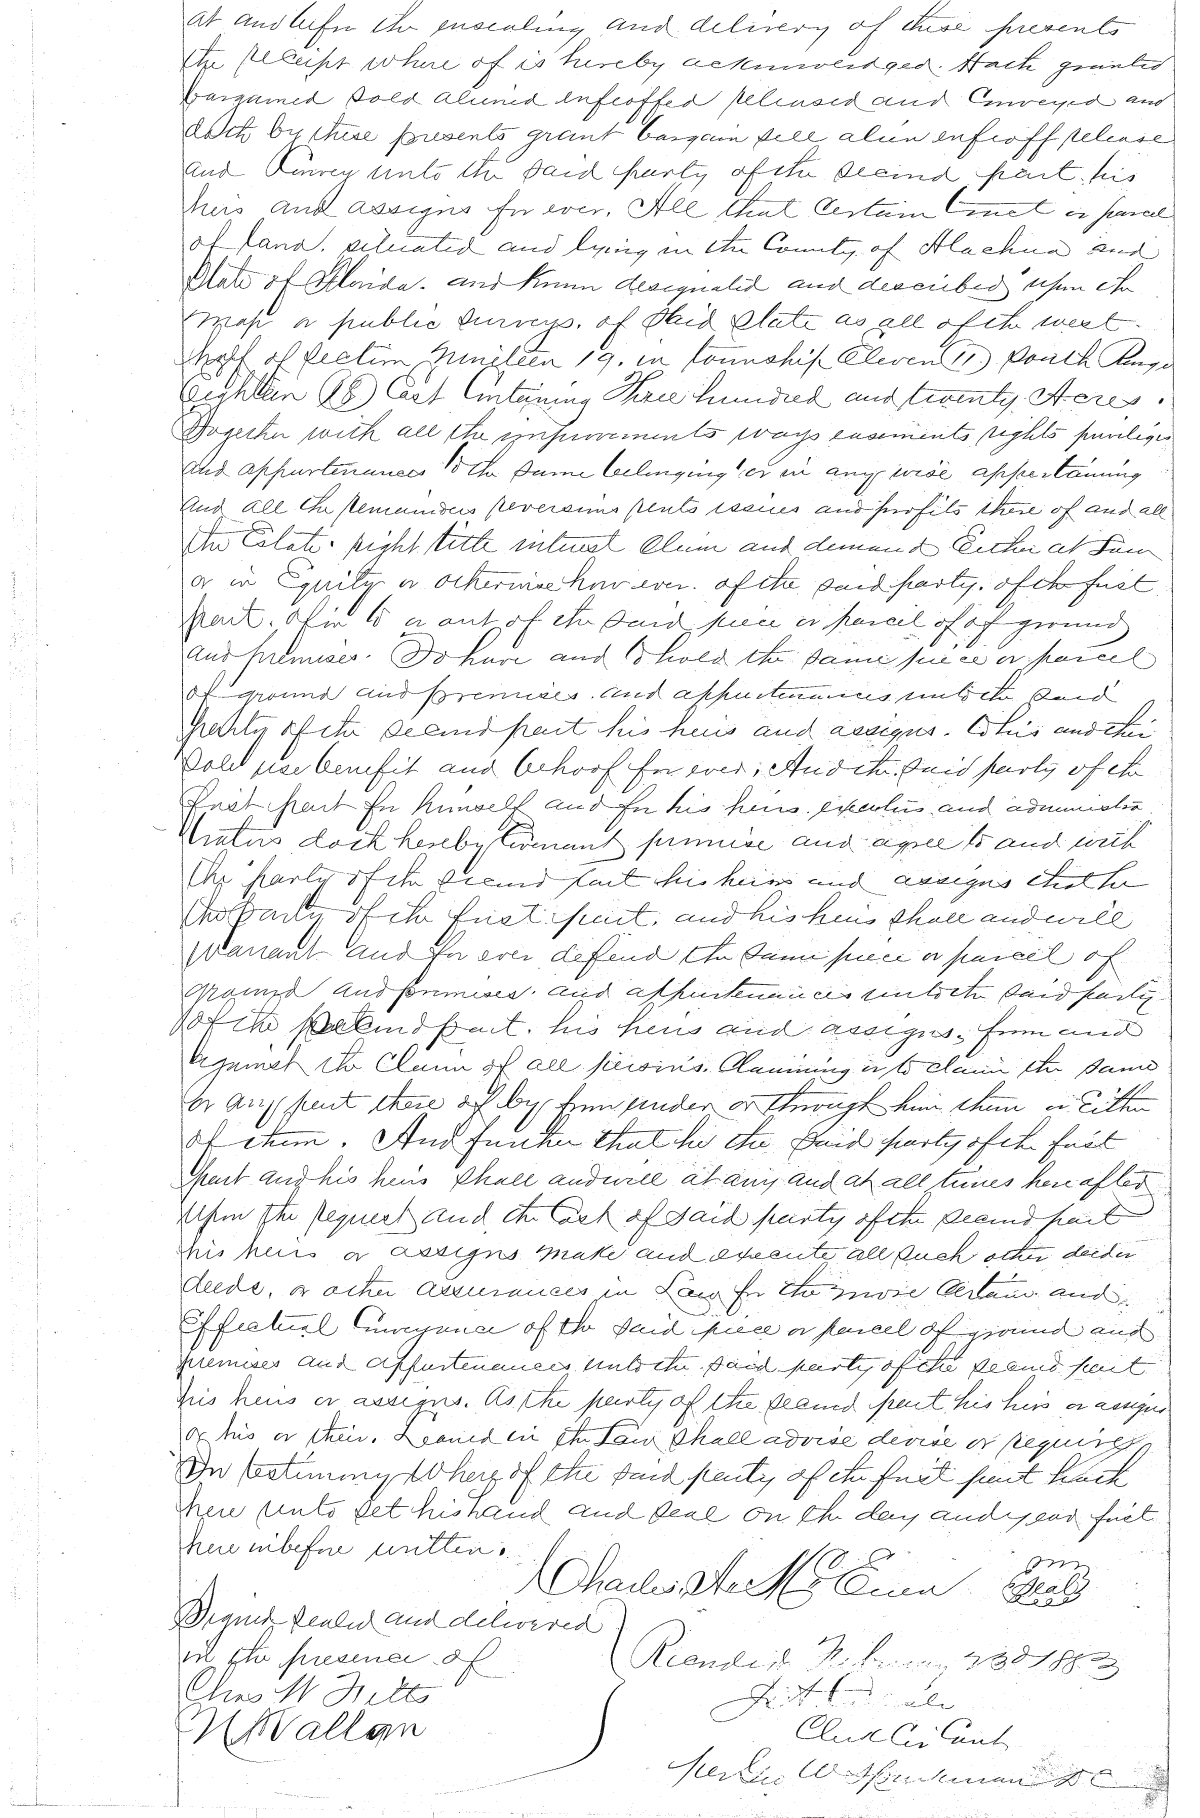 at and before the ensealing and delivery of these presents
the receipt where of is hereby acknowledged. Hath granted
bargained sold aliened enfeoffed released and Conveyed and
doth by these presents grant bargain sell alien enfeoff release
and Convey unto the said party of the second part his
heirs and assigns for ever. All that Certain tract or parcel
of land. situated and lying in the County of Alachua and
State of Florida. and known designated and described upon the
map or public surveys. of said State as all of the west
half of Section Nineteen 19. in township Eleven (11) South Range
Eighteen (18) East Containing Three hundred and twenty Acres.
Together with all the improvements ways easements rights privileges
and appurtenances to the same belonging or in any wise appertaining
and all the remainders reversions rents issues and profits there of and all
the Estate. right title interest Claim and demand Either at Law
or in Equity or otherwise how ever. of the said party. of the first
part. of in to or out of the said piece or parcel of of ground
and premises. To have and to hold the same piece or parcel
of ground and premises and appurtenances unto the said
party of the second part his heirs and assigns. to his and their
sole use benefit and behoof for ever; And the said party of the
first part for himself and for his heirs executors and administra
trators doth hereby Covenant promise and agree to and with
the party of the second part his heirs and assigns that he
the party of the first part. and his heirs shall and will
warrant and for ever defend the same piece or parcel of
ground and premises. and appurtenances unto the said party
of the second part. his heirs and assigns. from and
against the Claim of all persons. Claiming or to claim the same
or any part there of by from under or through him them or Either
of them. And further that he the said party of the first
part and his heirs shall and will at any and at all times here after
upon the request and the Cost of said party of the second part
his heirs or assigns make and execute all such other
deeds. or other assurances in Law for the more Certain and
Effectual Conveyance of the said piece or parcel of ground and
premises and appurtenances unto the said party of the second part
his heirs or assigns. As the party of the second part his heirs or assigns
or his or their. Learned in the Law shall advise devise or require
In testimony Where of the said party of the first part hath
here unto set his hand and seal on the day and year first
here in before written.
Charles
Seal
Signed Sealed and delivered
in the presence of
Recorded February 23d 1883
Chas W Fitts
Clerk Cir Court
N Wallen
per W DC